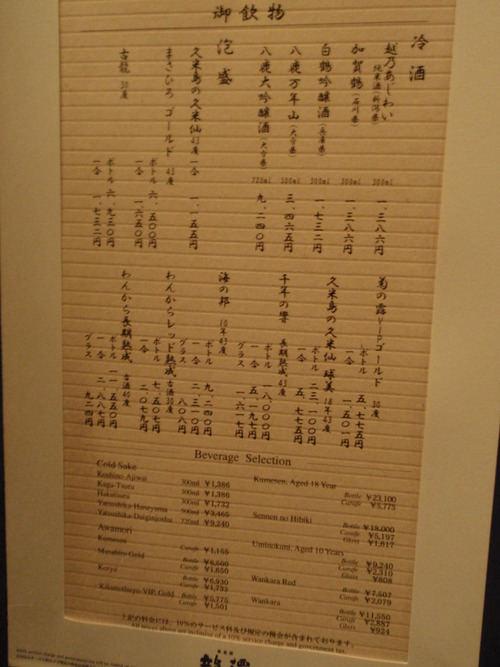 御飲物
冷酒
越乃あじわい
純米酒(新潟県)
300ml 一、三八六円
加賀鶴(石川県) 300ml 一、三八六円
白鶴吟醸酒(兵庫県) 300ml 一、七三二円
八鹿万年山(大分県) 500ml 三、四六五円
八鹿大吟醸酒(大分県) 720ml 九、二四〇円
泡盛
久米島の久米仙 43度 一合 一、一五五円
まさひろ ゴールド 43度
ボトル 六、六〇〇円
一合 一、六五〇円
古龍 30度
ボトル 六、九三〇円
一合 一、七三二円
菊の露VIPゴールド 30度
ボトル 五、七七五円
一合 一、五〇一円
久米島の久米仙 球美 18年43度
ボトル 二三、一〇〇円
一合 五、七七五円
千年の響 長期熟成 43度
ボトル 一八、〇〇〇円
一合 五、一九七円
グラス 一、六一七円
海の邦 10年43度
ボトル 九、二四〇円
一合 二、三一〇円
グラス 八〇八円
わんからレッド熟成 古酒30度
ボトル 七、五〇七円
一合 二、〇七九円
わんから長期熟成 古酒40度
ボトル 一一、五五〇円
一合 二、八八七円
グラス 九二四円
Beverage Selection
Cold Sake
Koshino-Ajiwai 300ml ¥1,386
Kaga-Tsuru 300ml ¥1,386
Hakutsuru 300ml ¥1,732
Yatsushika-Haneyama 500ml ¥3,465
Yatsushika-Daiginjoshu 720ml ¥9,240
Awamori
Kumesen Carafe ¥1,155
Masahiro-Gold Bottle ¥6,600
Carafe ¥1,650
Koryu Bottle ¥6,930
Carafe ¥1,732
Kikunotsuyu-VIP, Gold Bottle ¥5,775
Carafe ¥1,501
Kumesen, Aged 18 Year Bottle ¥23,100
Carafe ¥5,775
Sennen no Hibiki Bottle ¥18,000
Carafe ¥5,197
Glass ¥1,617
Uminokuni, Aged 10 Years Bottle ¥9,240
Carafe ¥2,310
Glass ¥808
Wankara Red Bottle ¥7,507
Carafe ¥2,079
Wankara Bottle ¥11,550
Carafe ¥2,887
Glass ¥924
上記の料金には、10%のサービス料及び規定の税金が含まれております。
All prices above are inclusive of a 10% service charge and government tax.